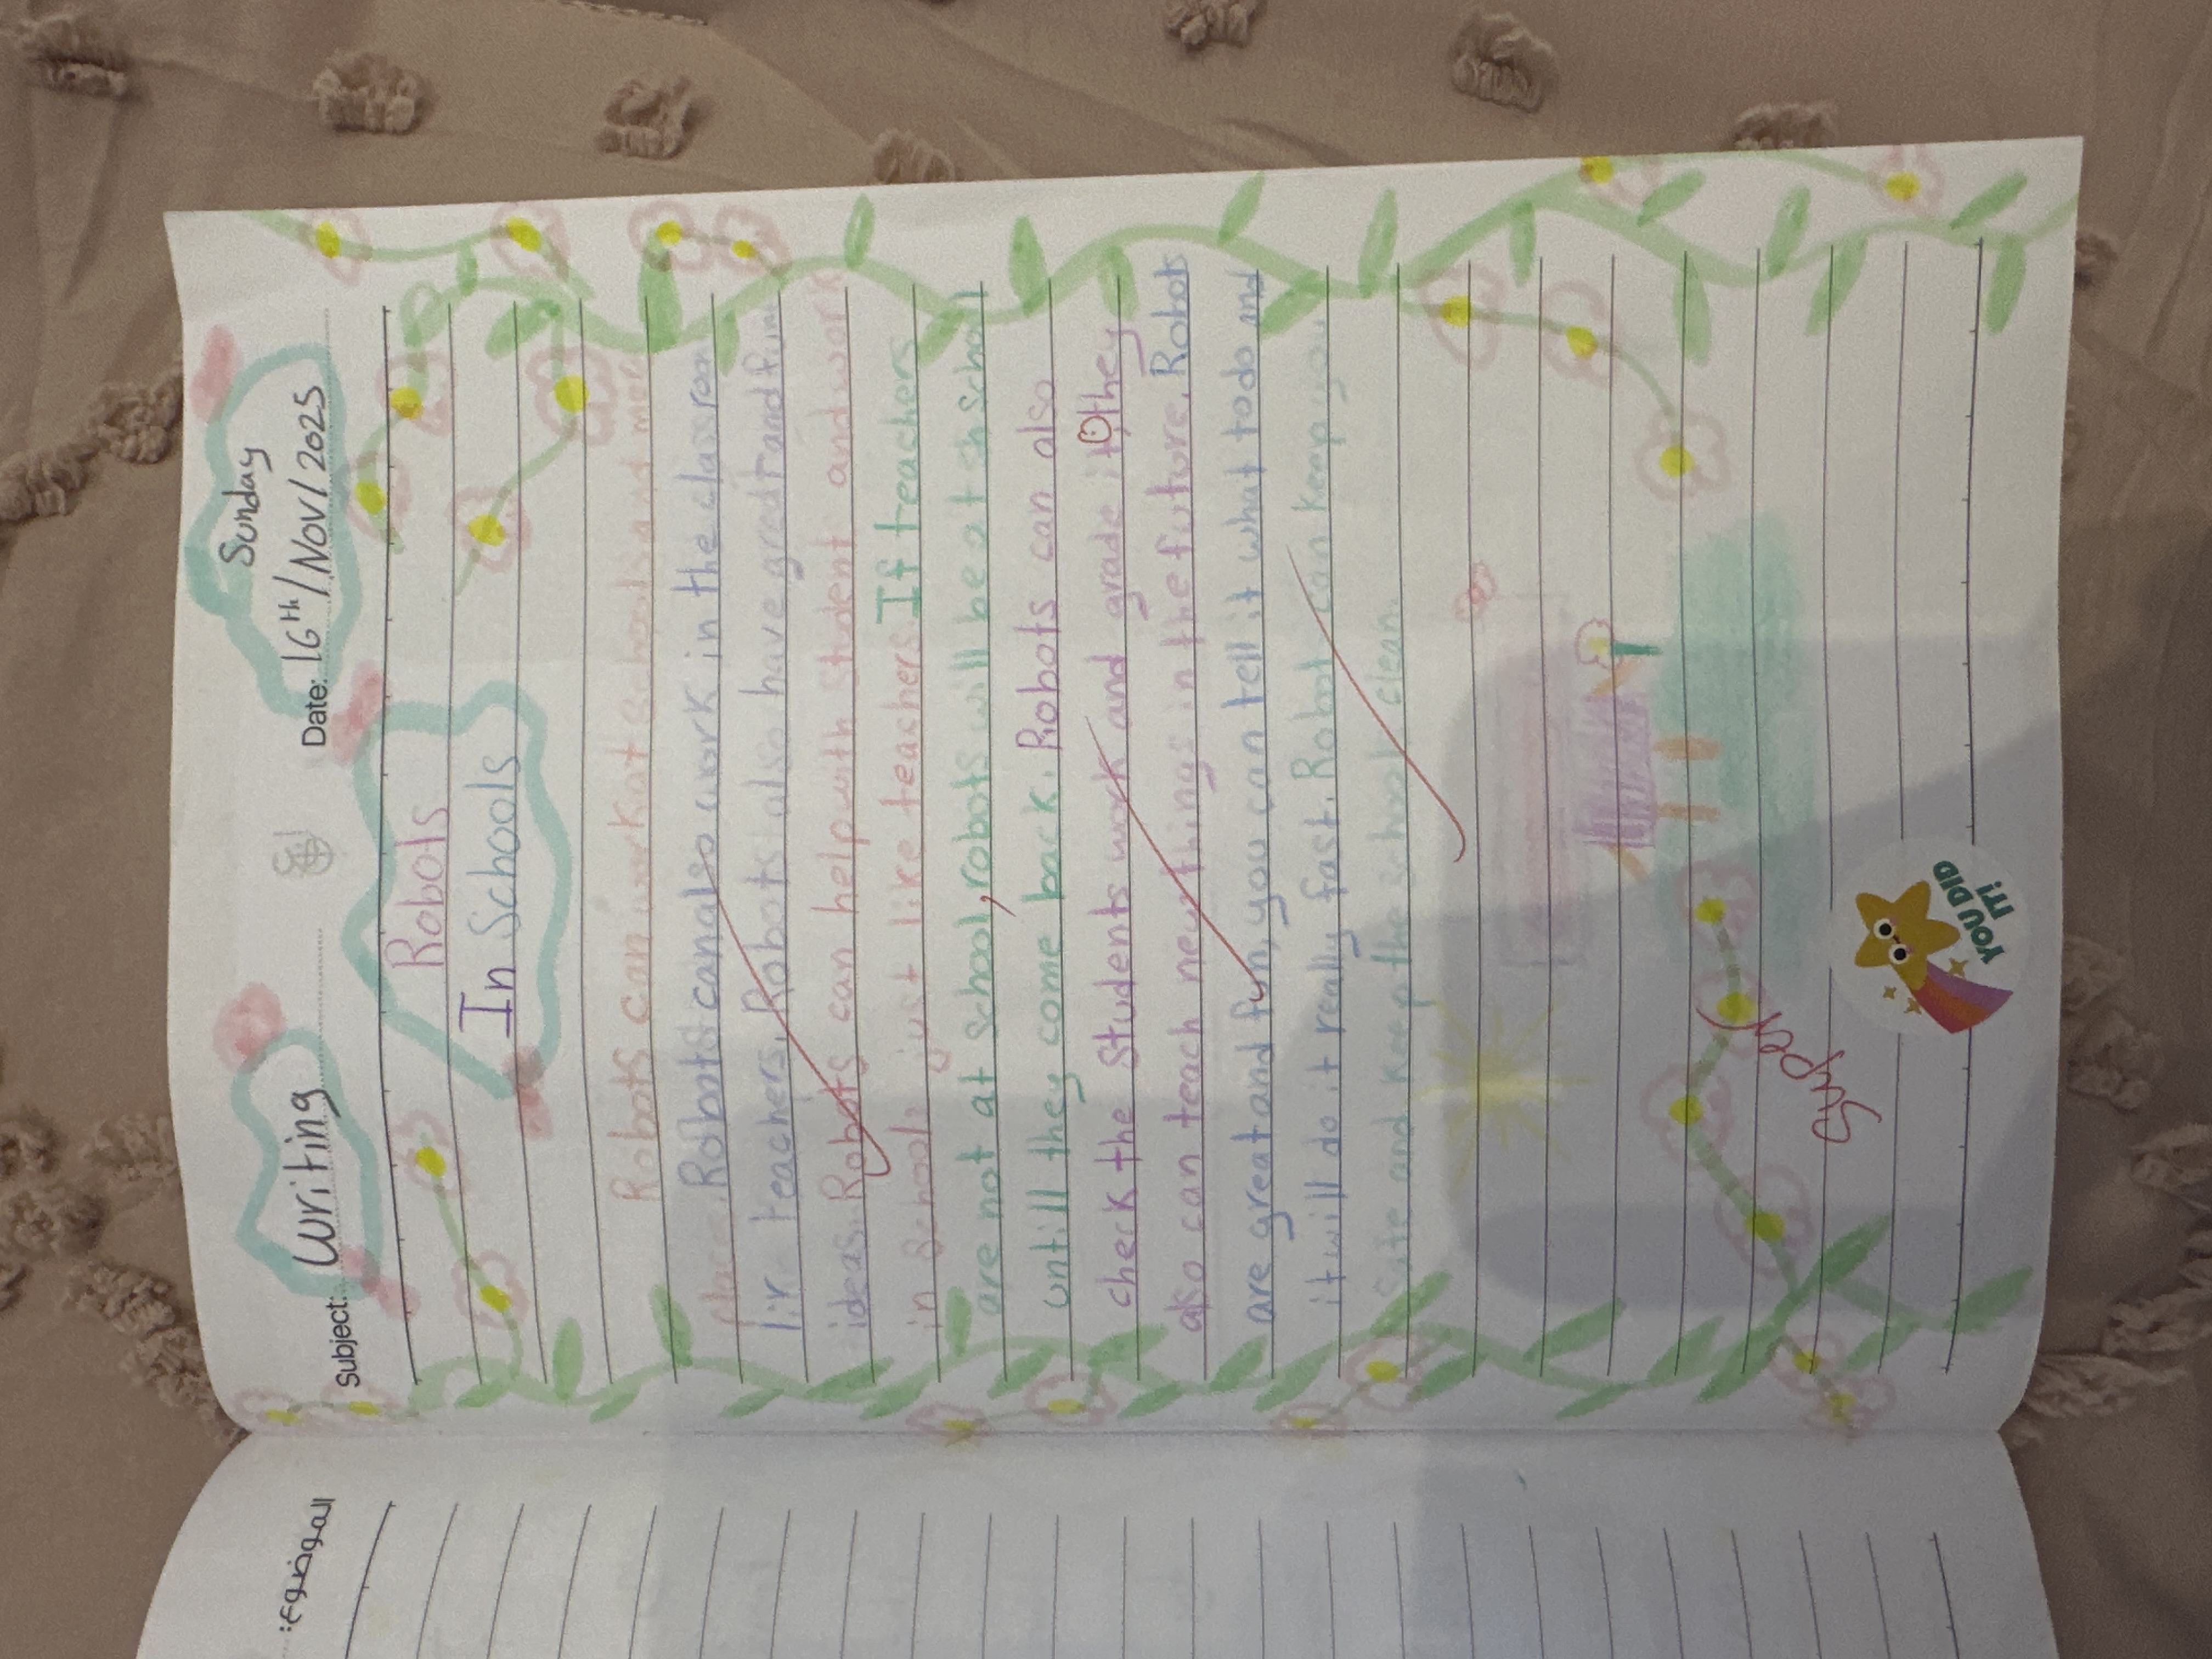 Subject: Writing
Date: 16th/Nov/2025
Sunday
Robots
In Schools
Robots can work at schools and mor
place. Robots can also work in the classroom
like teachers. Robots also have great and fun
ideas. Robots can help with student and work
in schools just like teachers. If teachers
are not at school, robots will be at school
untill they come back. Robots can also
check the students work and grade it they
also can teach new things in the future. Robots
are great and fun, you can tell it what to do and
it will do it really fast. Robot can keep you
safe and keep the school clean.
Super
YOU DID
IT!
الموضوع: